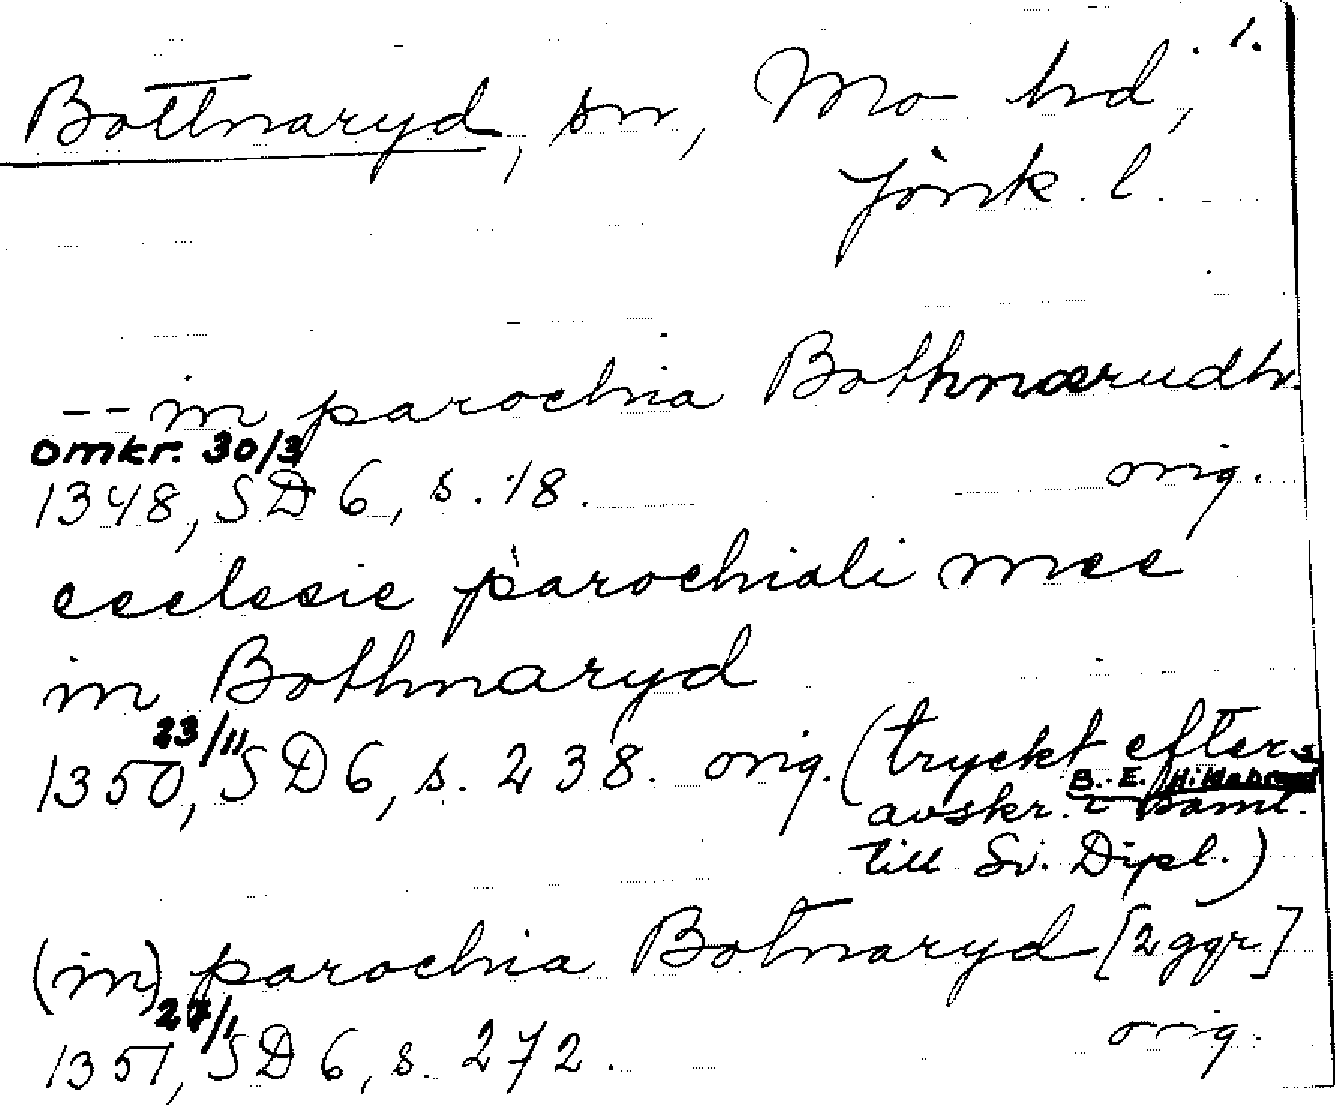 1.
Bottnaryd, sn, Mo hd,
Jönk. l.
-- in parochia Bothnærudh.
omkr. 30/3
1348, SD 6, s. 18. orig.
ecclesie parochiali mee
in Bothnaryd
23/11
1350, SD 6, s. 238. orig. (tryckt efter
B. E. Hildebrand
avskr. i saml.
till Sv. Dipl.)
(in) parochia Botnaryd [2 ggr.]
27/1
1351, SD 6, s. 272. orig.